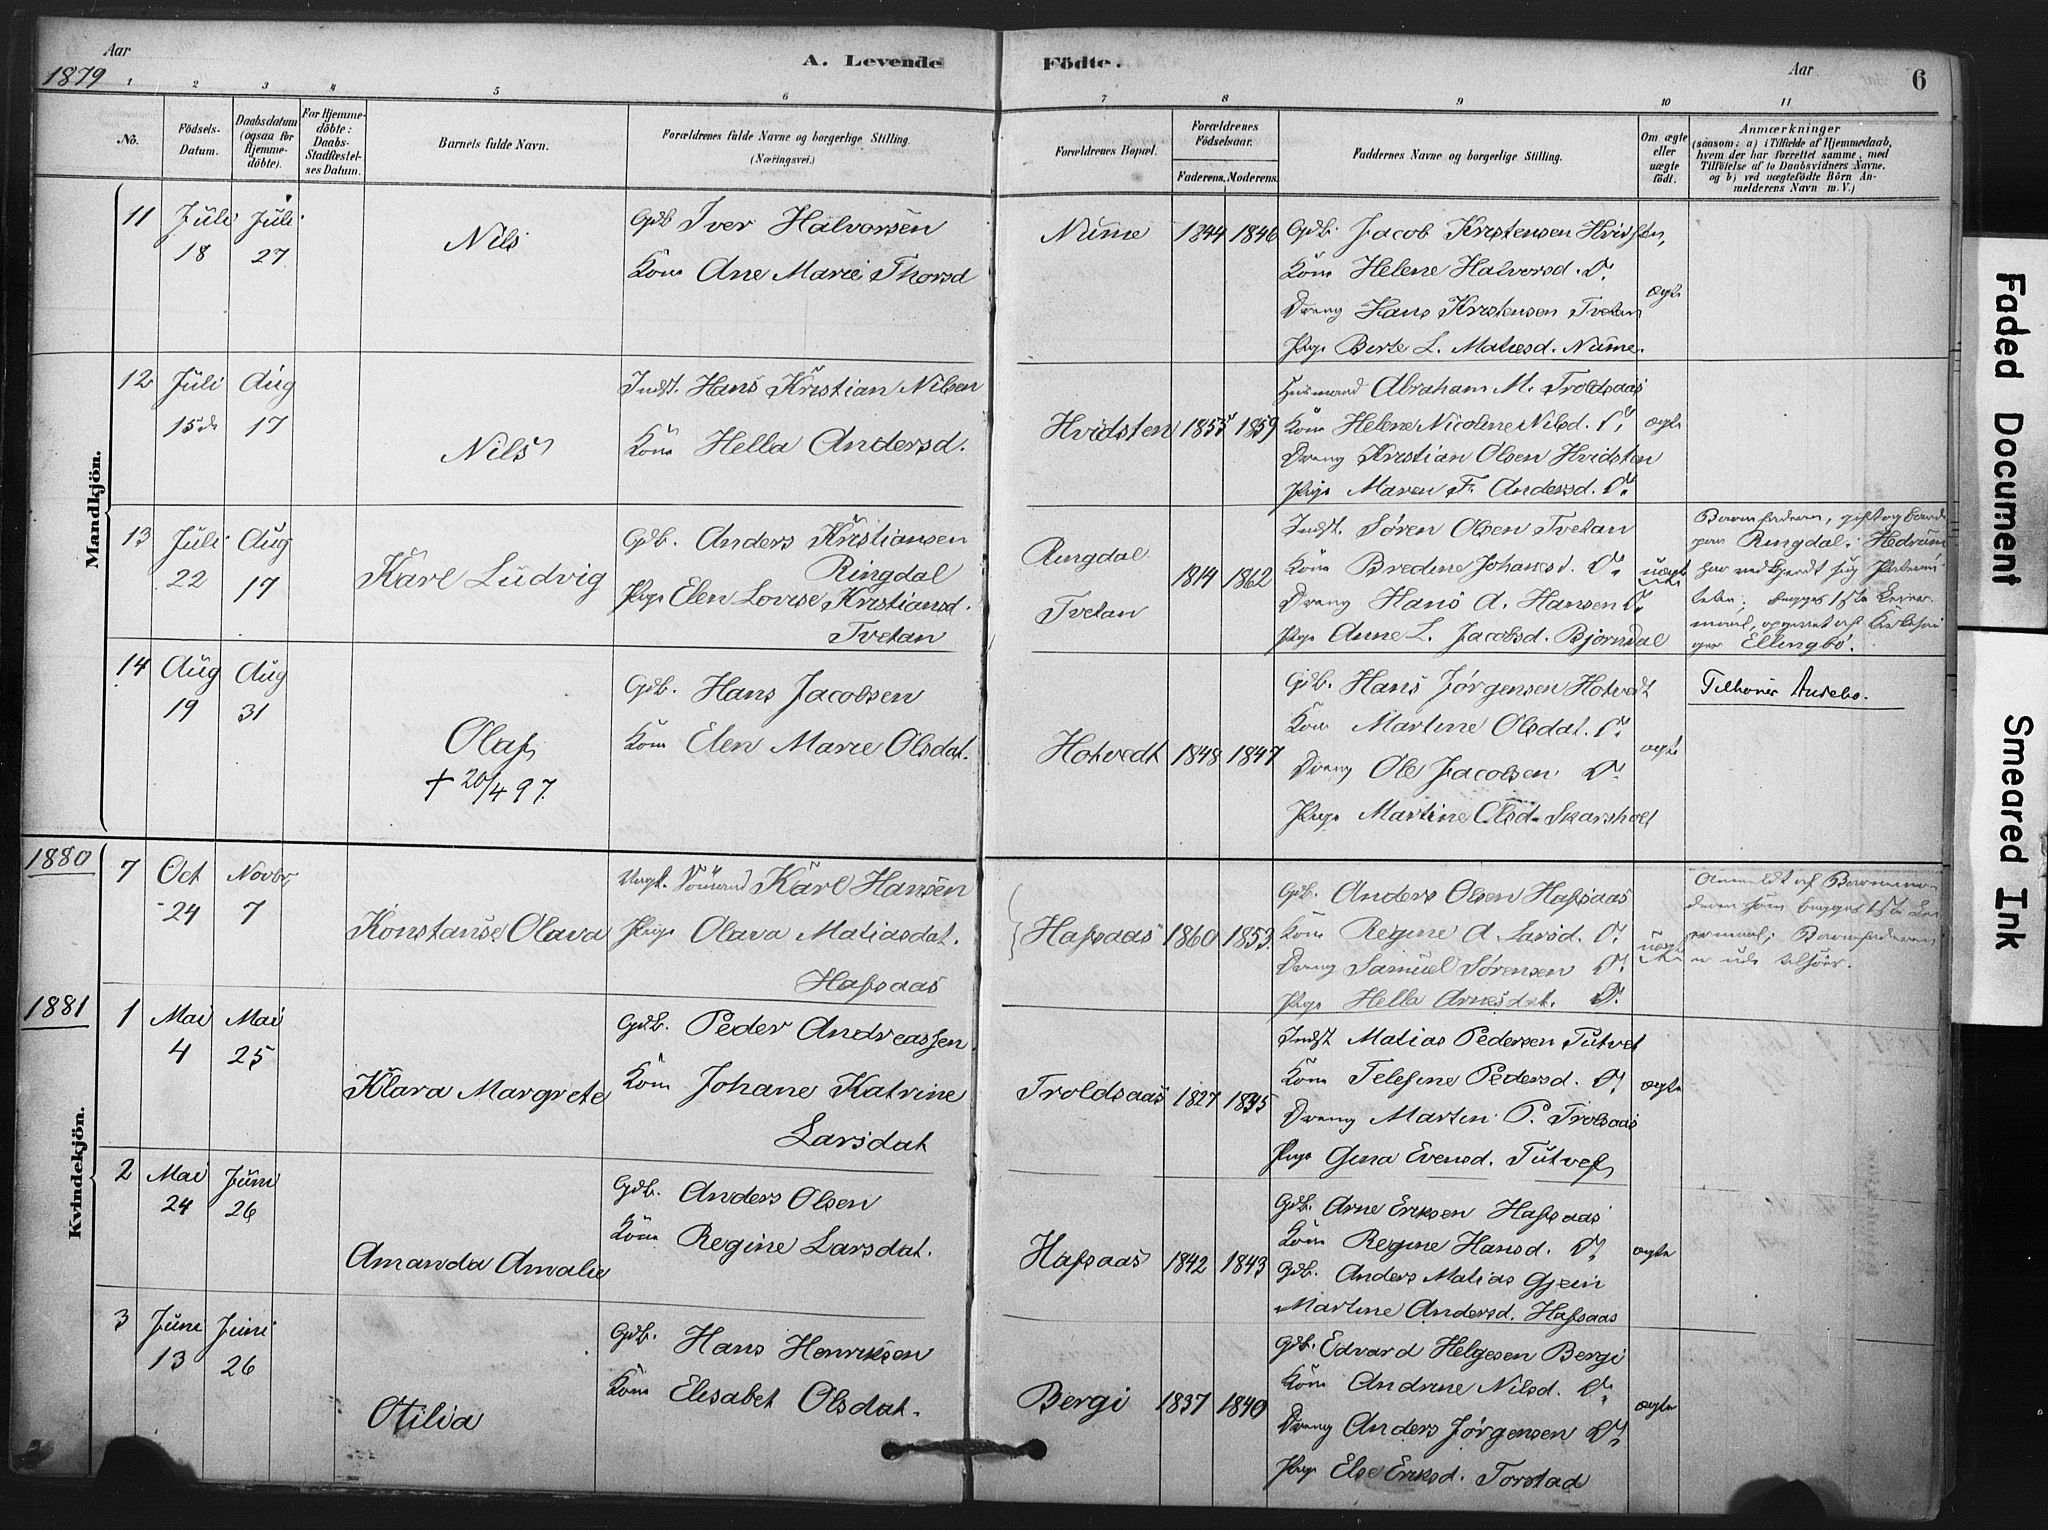 Aar
1879
A. Levende Födte.
Aar
6
1 2 3 4 5 6 7 8 9 10 11
No.
Födsels-Datum.
Daabsdatum (ogsaa for Hjemme-döbte).
For Hjemme-döbte: Daabs-Stadfæstel-ses Datum.
Barnets fulde Navn.
Forældrenes fulde Navne og borgerlige Stilling. (Næringsvei.)
Forældrenes Bopæl.
Forældrenes Födselsaar.
Faderens. Moderens.
Faddernes Navne og borgerlige Stilling.
Om ægte eller uægte födt.
Anmærkninger
(saasom: a) i Tilfælde af Hjemmedaab, hvem der har forrettet samme, med Tilföielse af to Daabsvidners Navne. og b) ved uægtefödte Börn An-melderens Navn m. V.)
Mandkjön.
11 Juli 18 Juli 27
Nils
Gdb Iver Halvorsen
Kone Ane Marie Thorsd
Nume 1844 1846
Gdb. Jacob Kristensen Hvidsten,
Kone Helene Halvorsd. Do
Dreng Hans Kristensen Tvetan
Pige Berte L. Matiesd. Nume.
ægte
12 Juli 15de Aug 17
Nils
Indst. Hans Kristian Nilsen
Kone Hella Andersd.
Hvidsten 1855 1859
Husmand Abraham M. Troldsaas
Kone Helene Nicoline Nilsd. Do
Dreng Kristian Olsen Hvidsten
Pige Maren F. Andersd. Do
ægte
13 Juli 22 Aug 17
Karl Ludvig
Gdb. Anders Kristiansen Ringdal
Pige Elen Lovise Kristiansd. Tvetan
Ringdal
Tvetan
1814 1862
Indst. Søren Olsen Tvetan
Kone Bredine Johansd. Do
Dreng Hans A. Hansen Do
Pige Anne L. Jacobsd. Bjørndal
uægte
Barnefaderen, gift og Gaardb
paa Ringdal i Hedrum
har vedkjendt sig Paterni
teten; begges 1ste Leier
maal, opgivet af Kirkesan
ger Ellingbö.
14 Aug 19 Aug 31
Olaf
† 20/4 97.
Gdb. Hans Jacobsen
Kone Elen Marie Olsdat.
Hotvedt 1848 1847
Gdb. Hans Jørgensen Hotvedt
Kone Martine Olsdat. Do
Dreng Ole Jacobsen Do
Pige Martine Olsd. Skarsholt
ægte
Tilhører Andebo.
Kvindekjön.
1880
7 Oct 24 Novbr. 7
Konstanse Olava
Ungk. Sömand Karl Hansen
Pige Olava Matiasdat. Hafsaas
Hafsaas 1860 1853
Gdb. Anders Olsen Hafsaas
Kone Regine A Larsd. Do
Dreng Samuel Sørensen Do
Pige Hella Arnesdat. Do
uægte
Anmeldt af Barnemo
deren som begges 1ste Lei
ermaal; Barnefaderen
er ude tilsjøes.
1881
1 Mai 4 Mai 25
Klara Margrete
Gdb. Peder Andreassen
Kone Johane Katrine Larsdat
Troldsaas 1827 1835
Indst Matias Pedersen Tutvet
Kone Telefine Pedersd. Do
Dreng Martin P. Trolsaas
Pige Gina Evensd. Tutvet
ægte
2 Mai 24 Juni 26
Amanda Amalie
Gdb. Anders Olsen
Kone Regine Larsdat.
Hafsaas 1842 1843
Gdb. Arne Eriksen Hafsaas
Kone Regine Hansd. Do
Gdb. Anders Matias Gjein
Martine Andersd. Hafsaas
ægte
3 Juni 13 Juni 26
Otilia
Gdb. Hans Henriksen
Kone Elisabet Olsdat.
Bergi 1837 1840
Gdb. Edvard Helgesen Bergi
Kone Andrine Nilsd. Do
Dreng Anders Jørgensen Do
Pige Else Eriksd. Torstad
ægte
Faded Document
Smeared Ink